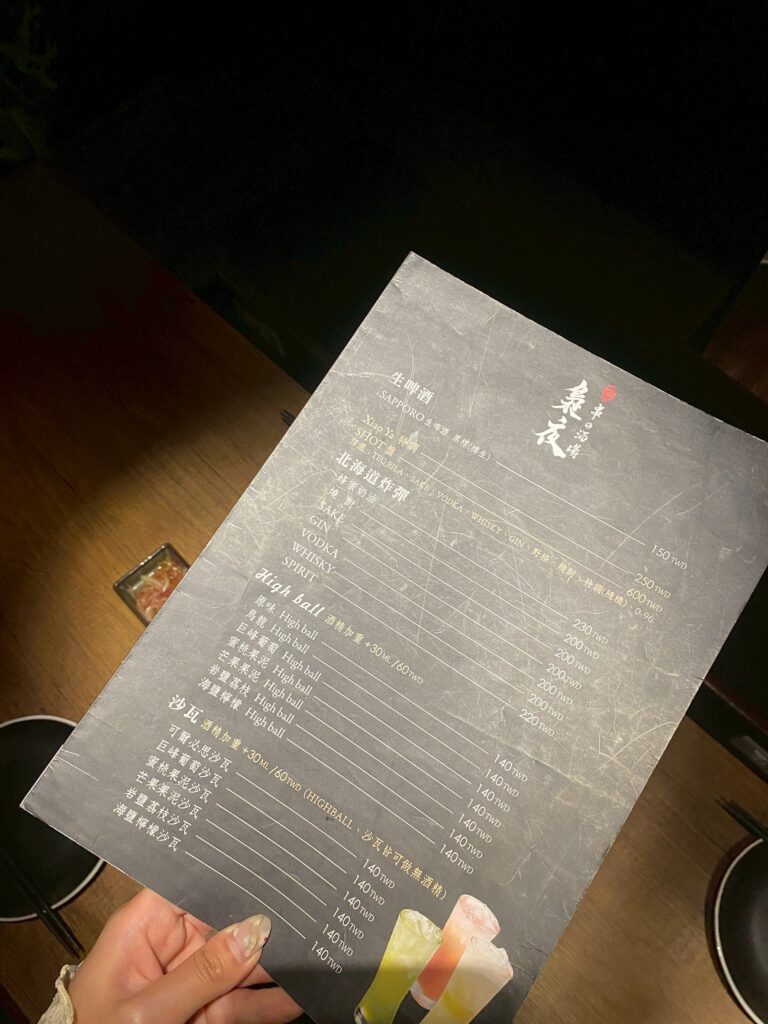 串の酒場
裊夜
生啤酒
SAPPORO 生啤酒 黑標(樽生) 150 TWD
Xiao Ya 特調 250 TWD
SHOT盤 600 TWD
任選:TEQUILA、SAKE、VODKA、WHISKY、GIN、野格、燒酎、特調(隨機)
北海道炸彈
蜂蜜奶油 230 TWD
燒酎 200 TWD
SAKE 200 TWD
GIN 200 TWD
VODKA 200 TWD
WHISKY 220 TWD
SPIRIT
High ball 酒精加重 +30ML/60TWD
原味 High ball 140 TWD
烏龍 High ball 140 TWD
巨峰葡萄 High ball 140 TWD
蜜桃果泥 High ball 140 TWD
芒果果泥 High ball 140 TWD
岩鹽荔枝 High ball 140 TWD
海鹽檸檬 High ball
沙瓦 酒精加重 +30ML/60TWD (HIGHBALL、沙瓦皆可做無酒精)
可爾必思沙瓦 140 TWD
巨峰葡萄沙瓦 140 TWD
蜜桃果泥沙瓦 140 TWD
芒果果泥沙瓦 140 TWD
岩鹽荔枝沙瓦 140 TWD
海鹽檸檬沙瓦 140 TWD